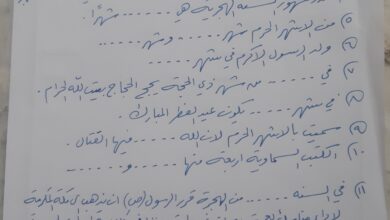 شهور السنه الهجرية هي ...... شهرًا.
٥) من الاشهر الحرم شهر ...... وشهر ......
٦) ولد الرسول الاكرم في شهر ......
٧) في ...... من شهر ذي الحجة يحج الحجاج بيت الله الحرام.
٨) في شهر ...... تكون عيد الفطر المبارك.
٩) سميت بالأشهر الحرم لان الله ...... فيها القتال.
١٠) الكتب السماوية اربعة منها ...... و ......
١١) في السنه ...... من الهجرة قرر الرسول (ص) ان يذهب الى مكة المكرمة